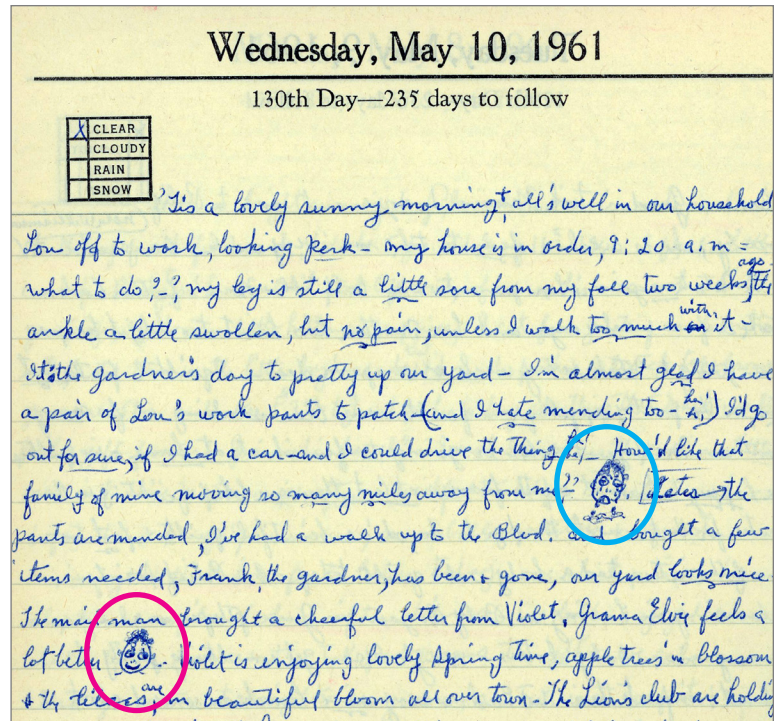 Wednesday, May 10, 1961
130th Day—235 days to follow
X CLEAR
CLOUDY
RAIN
SNOW
'Tis a lovely sunny morning + all's well in our household
Lou off to work, looking perk – my house is in order, 9:20 a.m =
what to do?–? my leg is still a little sore from my fall two weeks ago. the
ankle a little swollen, but no pain, unless I walk too much with it –
It's the gardner's day to pretty up our yard – I'm almost glad I have
a pair of Lou's work pants to patch – (and I hate mending too – hi! hi!) I'd go
out for sure, if I had a car – and I could drive the thing he! – How'd like that
family of mine moving so many miles away from me?? . Later → the
pants are mended, I've had a walk up to the Blvd. and bought a few
items needed, Frank, the gardner, has been + gone, our yard looks nice.
The mail man brought a cheerful letter from Violet, Grama Elvie feels a
lot better. Violet is enjoying lovely Spring time, apple trees in blossom
+ the lilacs are in beautiful bloom all over town – The Lion's club are holding